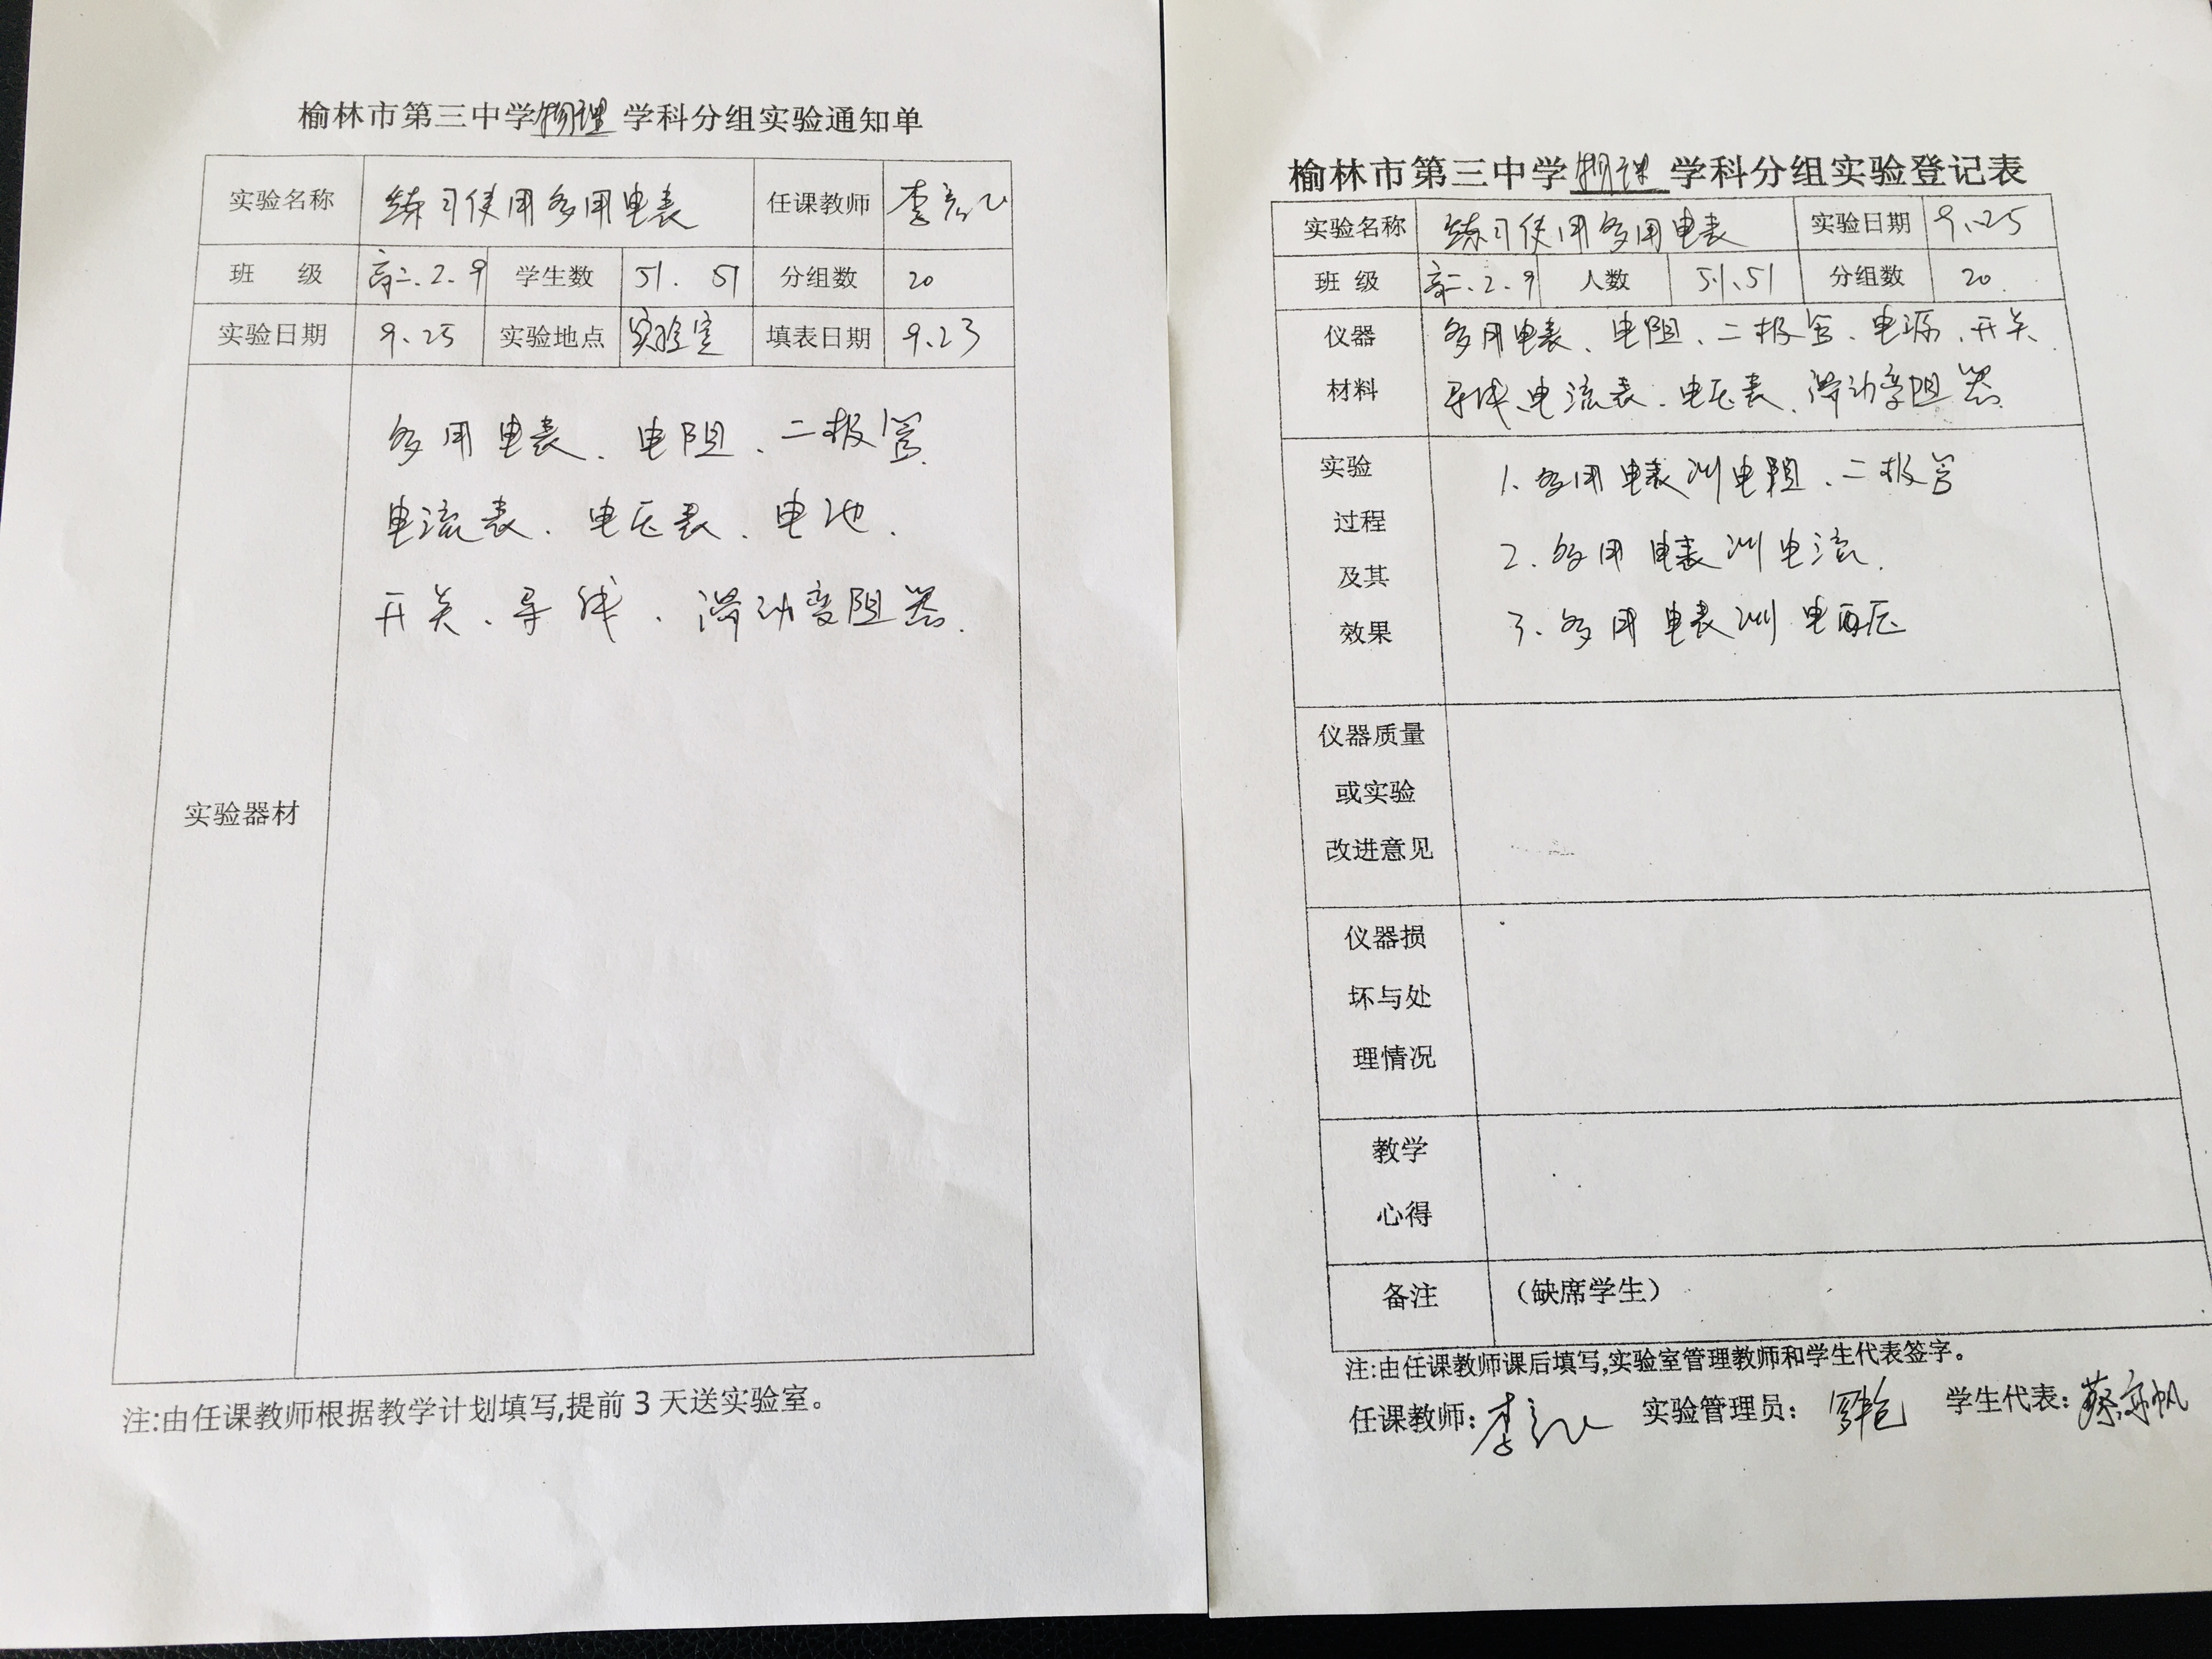 榆林市第三中学物理学科分组实验通知单
实验名称 练习使用多用电表 任课教师 李
班 级 高二.2.9 学生数 51. 51 分组数 20
实验日期 9.25 实验地点 实验室 填表日期 9.23
实验器材
多用电表、电阻、二极管、
电流表、电压表、电池、
开关、导线、滑动变阻器.
注:由任课教师根据教学计划填写,提前3天送实验室。
榆林市第三中学物理学科分组实验登记表
实验名称 练习使用多用电表 实验日期 9.25
班 级 高二.2.9 人数 51、51 分组数 20.
仪器 多用电表、电阻、二极管、电源、开关、
材料 导线、电流表、电压表、滑动变阻器.
实验 1.多用电表测电阻、二极管
过程
及其 2.多用电表测电流.
效果 3.多用电表测电压
仪器质量
或实验
改进意见
仪器损
坏与处
理情况
教学
心得
备注 (缺席学生)
注:由任课教师课后填写,实验室管理教师和学生代表签字。
任课教师: 李 实验管理员: 学生代表: 蔡